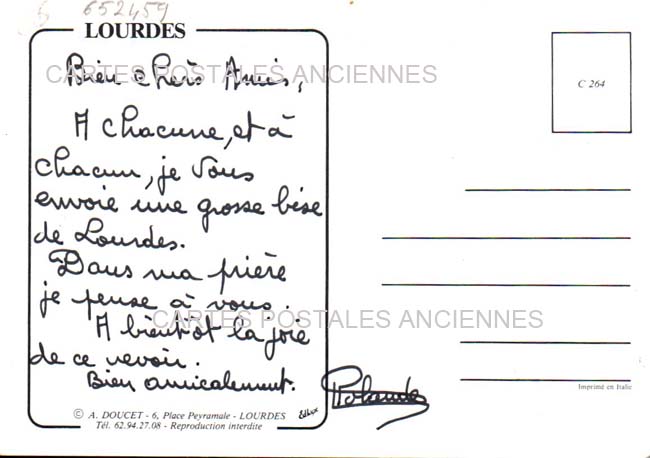 652459
LOURDES
Bien chers Amis,
CARTES POSTALES ANCIENNES
C 264
A chacune, et à
chacun, je vous
envoie une grosse bise
de Lourdes.
Dans ma prière
je pense à vous.
A bientôt la joie
CARTES POSTALES ANCIENNES
de ce revoir.
Bien amicalement.
Rolande
Imprimé en Italie
© A. DOUCET - 6, Place Peyramale - LOURDES
Tél. 62.94.27.08 - Reproduction interdite